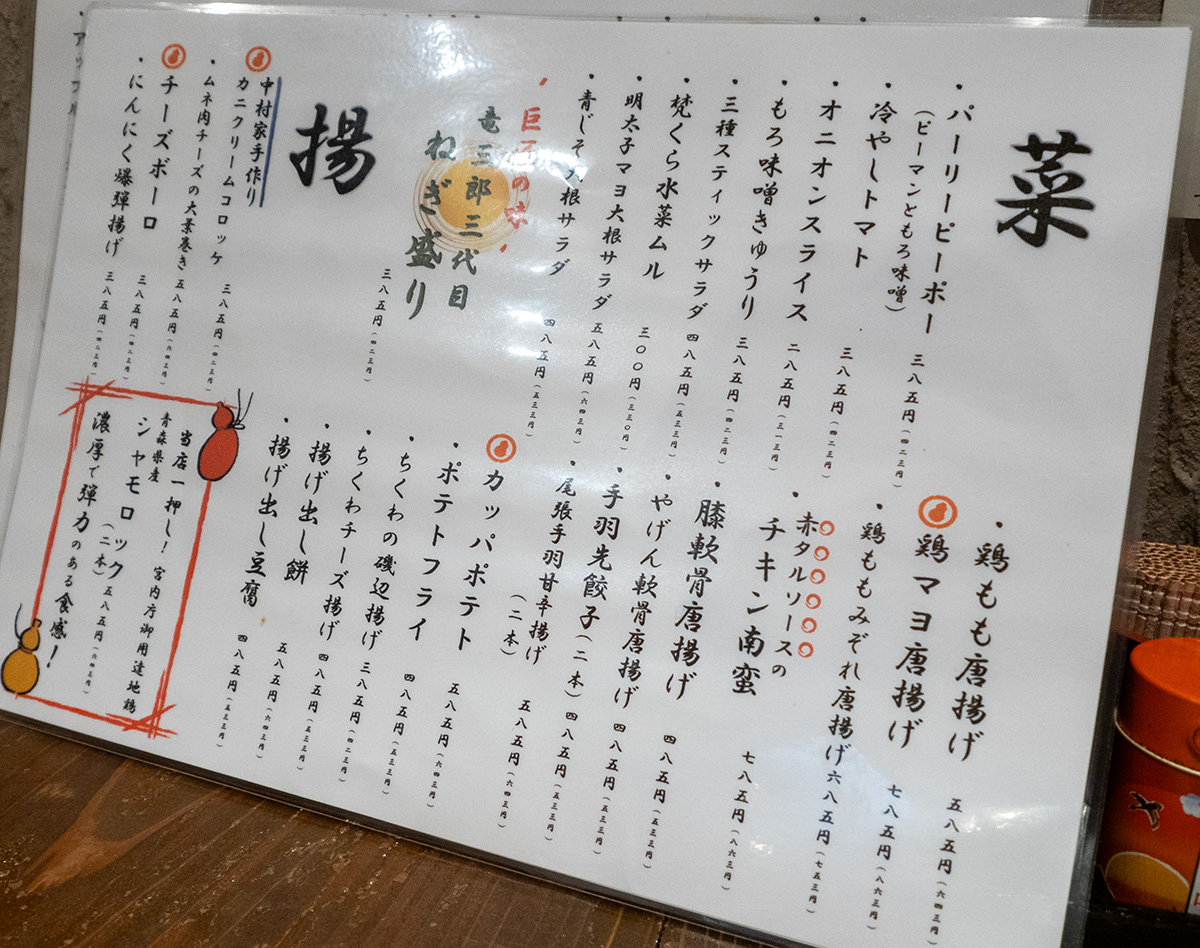 菜
・パーリーピーポー 三八五円(四二三円)
(ピーマンともろ味噌)
・冷やしトマト 三八五円(四二三円)
・オニオンスライス 二八五円(三一三円)
・もろ味噌きゅうり 三八五円(四二三円)
・三種スティックサラダ 四八五円(五三三円)
・梵くら水菜ムル 三〇〇円(三三〇円)
・明太子マヨ大根サラダ 五八五円(六四三円)
・青じそ大根サラダ 四八五円(五三三円)
竜三郎三代目
ねぎ盛り 三八五円(四二三円)
揚
中村家手作り
カニクリームコロッケ 三八五円(四二三円)
・ムネ肉チーズの大葉巻き 五八五円(六四三円)
チーズボーロ 三八五円(四二三円)
・にんにく爆弾揚げ 三八五円(四二三円)
・鶏もも唐揚げ 五八五円(六四三円)
鶏マヨ唐揚げ 七八五円(八六三円)
・鶏ももみぞれ唐揚げ 六八五円(七五三円)
・赤タルソースの
チキン南蛮 七八五円(八六三円)
・膝軟骨唐揚げ 四八五円(五三三円)
・やげん軟骨唐揚げ 四八五円(五三三円)
・手羽先餃子(二本) 四八五円(五三三円)
・尾張手羽甘辛揚げ
(二本) 五八五円(六四三円)
カッパポテト 五八五円(六四三円)
・ポテトフライ 四八五円(五三三円)
・ちくわの磯辺揚げ 三八五円(四二三円)
・ちくわチーズ揚げ 四八五円(五三三円)
・揚げ出し餅 五八五円(六四三円)
・揚げ出し豆腐 四八五円(五三三円)
当店一押し!宮内庁御用達地鶏
青森県産
シャモロック(二本) 五八五円(六四三円)
濃厚で弾力のある食感!